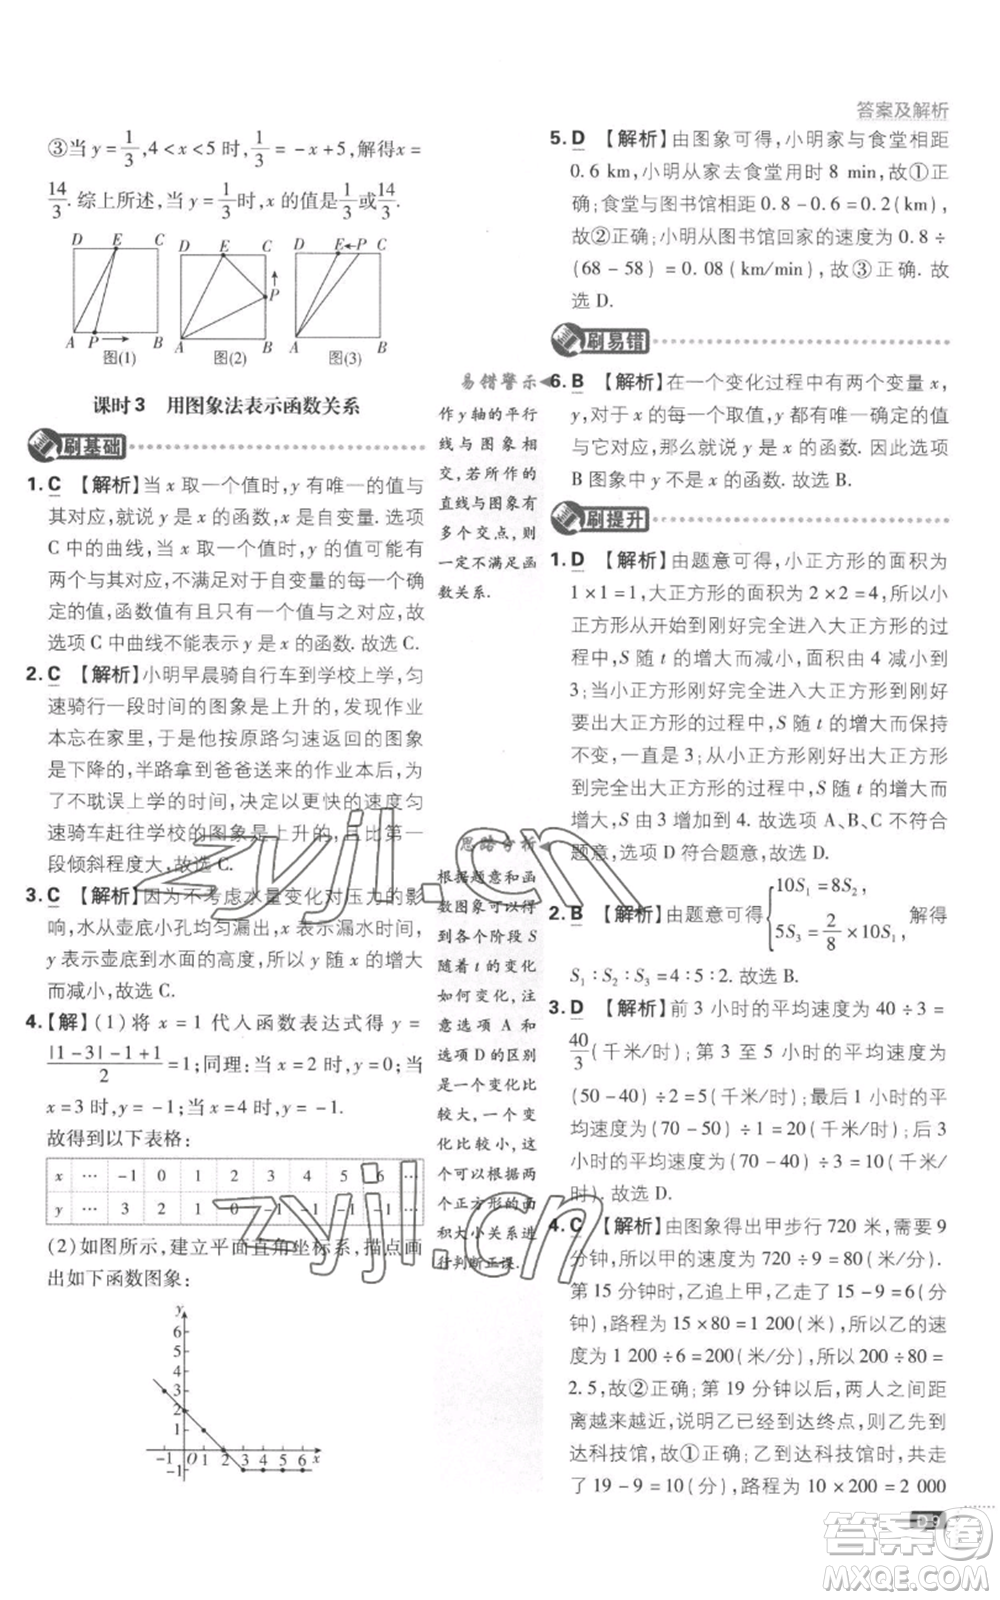 答案及解析
③当 y = 1/3, 4 < x < 5 时, 1/3 = -x + 5, 解得 x =
14/3. 综上所述, 当 y = 1/3 时, x 的值是 2/3 或 14/3.
D E C D E C D E←P C
A P B A B P A B
图(1) 图(2) 图(3)
课时 3 用图象法表示函数关系
刷基础
1. C 【解析】当 x 取一个值时, y 有唯一的值与
其对应, 就说 y 是 x 的函数, x 是自变量. 选项
C 中的曲线, 当 x 取一个值时, y 的值可能有
两个与其对应, 不满足对于自变量的每一个确
定的值, 函数值有且只有一个值与之对应, 故
选项 C 中曲线不能表示 y 是 x 的函数. 故选 C.
2. C 【解析】小明早晨骑自行车到学校上学, 匀
速骑行一段时间的图象是上升的, 发现作业
本忘在家里, 于是他按原路匀速返回的图象
是下降的, 半路拿到爸爸送来的作业本后, 为
了不耽误上学的时间, 决定以更快的速度匀
速骑车赶往学校的图象是上升的, 且比第一
段倾斜程度大, 故选 C.
3. C 【解析】因为不考虑水量变化对压力的影
响, 水从壶底小孔均匀漏出, x 表示漏水时间,
y 表示壶底到水面的高度, 所以 y 随 x 的增大
而减小, 故选 C.
4. 【解】(1) 将 x = 1 代入函数表达式得 y =
(|1-3|-1+1)/2 = 1; 同理: 当 x = 2 时, y = 0; 当
x = 3 时, y = -1; 当 x = 4 时, y = -1.
故得到以下表格:
x … -1 0 1 2 3 4 5 6 …
y … 3 2 1 0 -1 -1 -1 -1 …
(2) 如图所示, 建立平面直角坐标系, 描点画
出如下函数图象:
y
6
5
4
3
2
1
-1 O 1 2 3 4 5 6 x
-1
易错警示
作 y 轴的平行
线与图象相
交, 若所作的
直线与图象有
多个交点, 则
一定不满足函
数关系.
思路分析
根据题意和函
数图象可以得
到各个阶段 S
随着 t 的变化
如何变化, 注
意选项 A 和
选项 D 的区别
是一个变化比
较大, 一个变
化比较小, 这
可以根据两个
正方形的面
积大小关系进
行判断正误.
5. D 【解析】由图象可得, 小明家与食堂相距
0.6 km, 小明从家去食堂用时 8 min, 故①正
确; 食堂与图书馆相距 0.8 - 0.6 = 0.2 (km),
故②正确; 小明从图书馆回家的速度为 0.8 ÷
(68 - 58) = 0.08 (km/min), 故③正确. 故
选 D.
刷易错
6. B 【解析】在一个变化过程中有两个变量 x,
y, 对于 x 的每一个取值, y 都有唯一确定的值
与它对应, 那么就说 y 是 x 的函数. 因此选项
B 图象中 y 不是 x 的函数. 故选 B.
刷提升
1. D 【解析】由题意可得, 小正方形的面积为
1 × 1 = 1, 大正方形的面积为 2 × 2 = 4, 所以小
正方形从开始到刚好完全进入大正方形的过
程, S 随 t 的增大而减小, 面积由 4 减小到
3; 小正方形从刚好完全进入大正方形到刚好
要出大正方形的过程中, S 随 t 的增大而保持
不变, 一直是 3; 从小正方形刚好出大正方形
到完全出大正方形的过程中, S 随 t 的增大而
增大, 由 3 增加到 4. 故选项 A、B、C 不符合
题意, 选项 D 符合题意. 故选 D.
2. B 【解析】由题意可得 { 10S₁ = 8S₂, 5S₃ = 2/8 × 10S₁, 解得
S₁ : S₂ : S₃ = 4 : 5 : 2. 故选 B.
3. D 【解析】前 3 小时的平均速度为 40 ÷ 3 =
40/3 (千米/时); 第 3 至 5 小时的平均速度为
(50 - 40) ÷ 2 = 5 (千米/时); 最后 1 小时的平
均速度为 (70 - 50) ÷ 1 = 20 (千米/时); 后 3
小时的平均速度为 (70 - 40) ÷ 3 = 10 (千米/
时). 故选 D.
4. C 【解析】由图象得出甲步行 720 米, 需要 9
分钟, 所以甲的速度为 720 ÷ 9 = 80 (米/分).
第 15 分钟时, 乙追上甲, 乙走了 15 - 9 = 6 (分
钟), 路程为 15 × 80 = 1 200 (米), 所以乙的速
度为 1 200 ÷ 6 = 200 (米/分), 所以 200 ÷ 80 =
2.5, 故②正确; 第 19 分钟以后, 两人之间距
离越来越近, 说明乙已经到达终点, 则乙先到
达科技馆, 故①正确; 乙到达科技馆时, 共走
了 19 - 9 = 10 (分), 路程为 10 × 200 = 2 000
D-9
zyjl.cn
zyjl.cn
答案圈
MXQE.COM